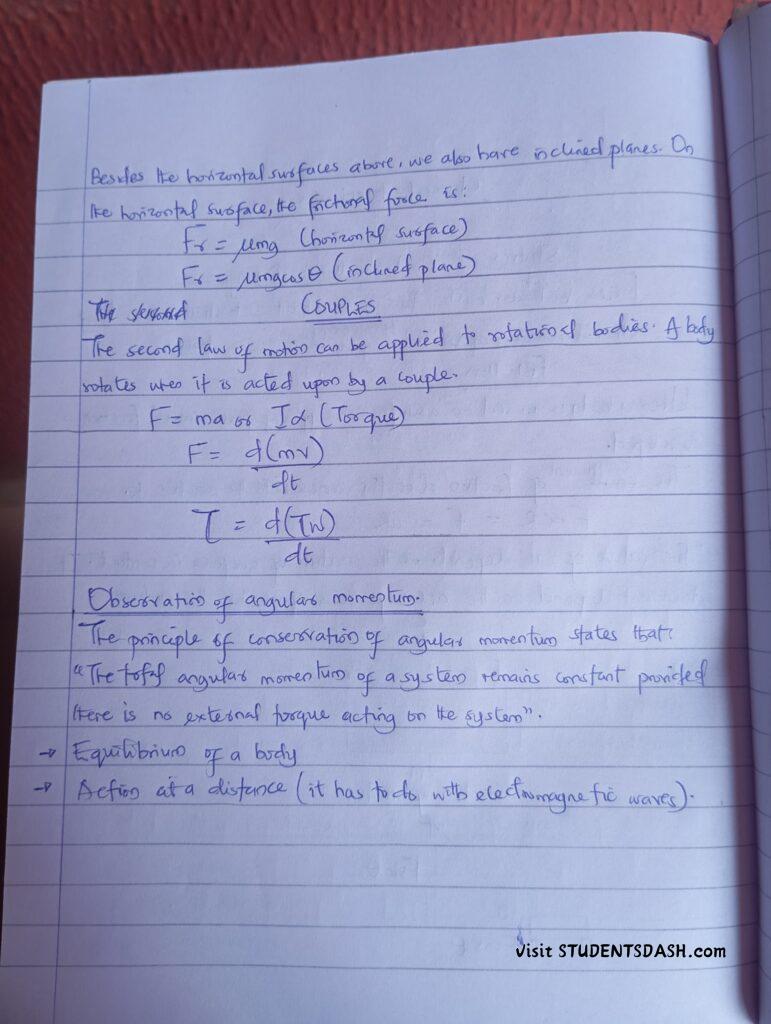 Besides the horizontal surfaces above, we also have inclined planes. On
the horizontal surface, the frictional force is:
Fr = μmg (horizontal surface)
Fr = μmgcosθ (inclined plane)
COUPLES
The second law of motion can be applied to rotational bodies. A body
rotates when it is acted upon by a couple.
F = ma or Iα (Torque)
F = d(mv)
dt
T = d(Iw)
dt
Observation of angular momentum.
The principle of conservation of angular momentum states that:
"The total angular momentum of a system remains constant provided
there is no external torque acting on the system".
→ Equilibrium of a body
→ Action at a distance (it has to do with electromagnetic waves).
Visit STUDENTSDASH.com